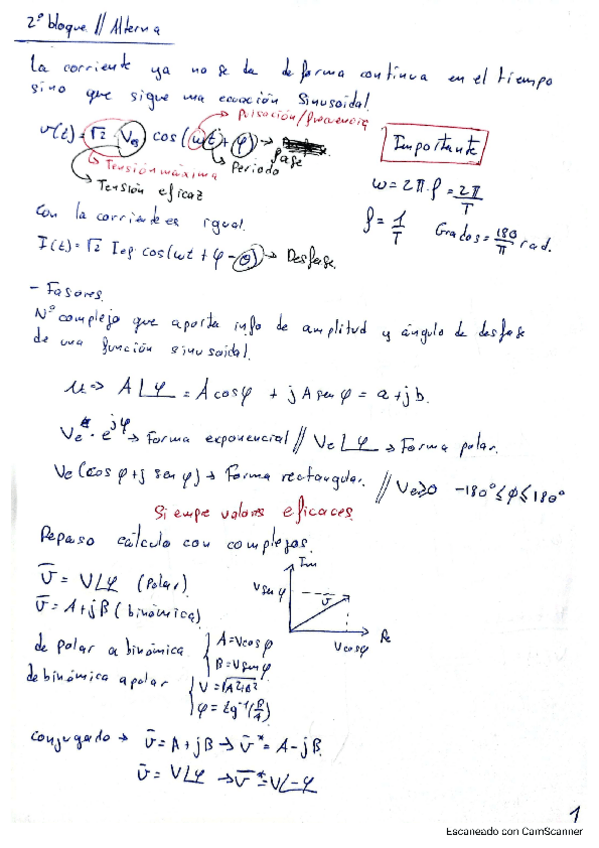 2º bloque // Alterna
La corriente ya no se da de forma continua en el tiempo
sino que sigue una ecuación sinusoidal.
Pulsación/frecuencia
v(t) = √2 · Vef cos(ωt + φ) → fase
Tensión máxima
Periodo
Tensión eficaz
Importante
ω = 2π·f = 2π/T
f = 1/T Grados = 180/π rad.
Con la corriente es igual.
I(t) = √2 Ief · cos(ωt + φ - θ) → Desfase.
- Fasores.
Nº complejo que aporta info de amplitud y ángulo de desfase
de una función sinusoidal.
u => A∠φ = A cosφ + j A sen φ = a + jb.
Ve · e^jφ → Forma exponencial // Ve∠φ → Forma polar.
Ve (cos φ + j sen φ) → Forma rectangular. // Ve≥0 -180° ≤ φ ≤ 180°
Siempre valores eficaces
Repaso cálculo con complejos.
v̄ = V∠φ (Polar)
v̄ = A + jB (binómica)
Im
V sen φ
v̄
Re
V cosφ
de polar a binómica { A = V cos φ
B = V sen φ
de binómica a polar { V = √A²+B²
φ = tg⁻¹(B/A)
conjugado → v̄ = A + jB → v̄* = A - jB
v̄ = V∠φ → v̄* = V∠-φ
1
Escaneado con CamScanner